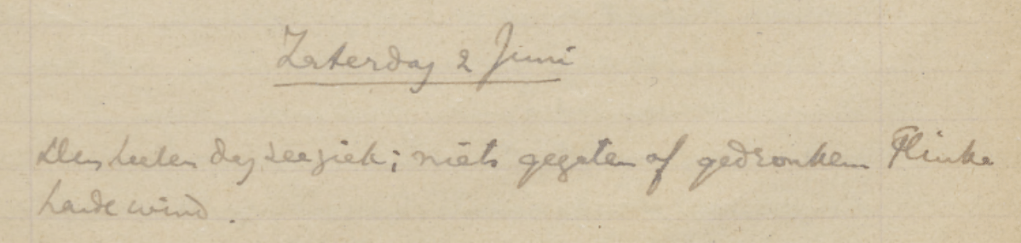 Zaterdag 2 Juni
Den heelen dag zeeziek; niets gegeten of gedronken Flinke
harde wind.